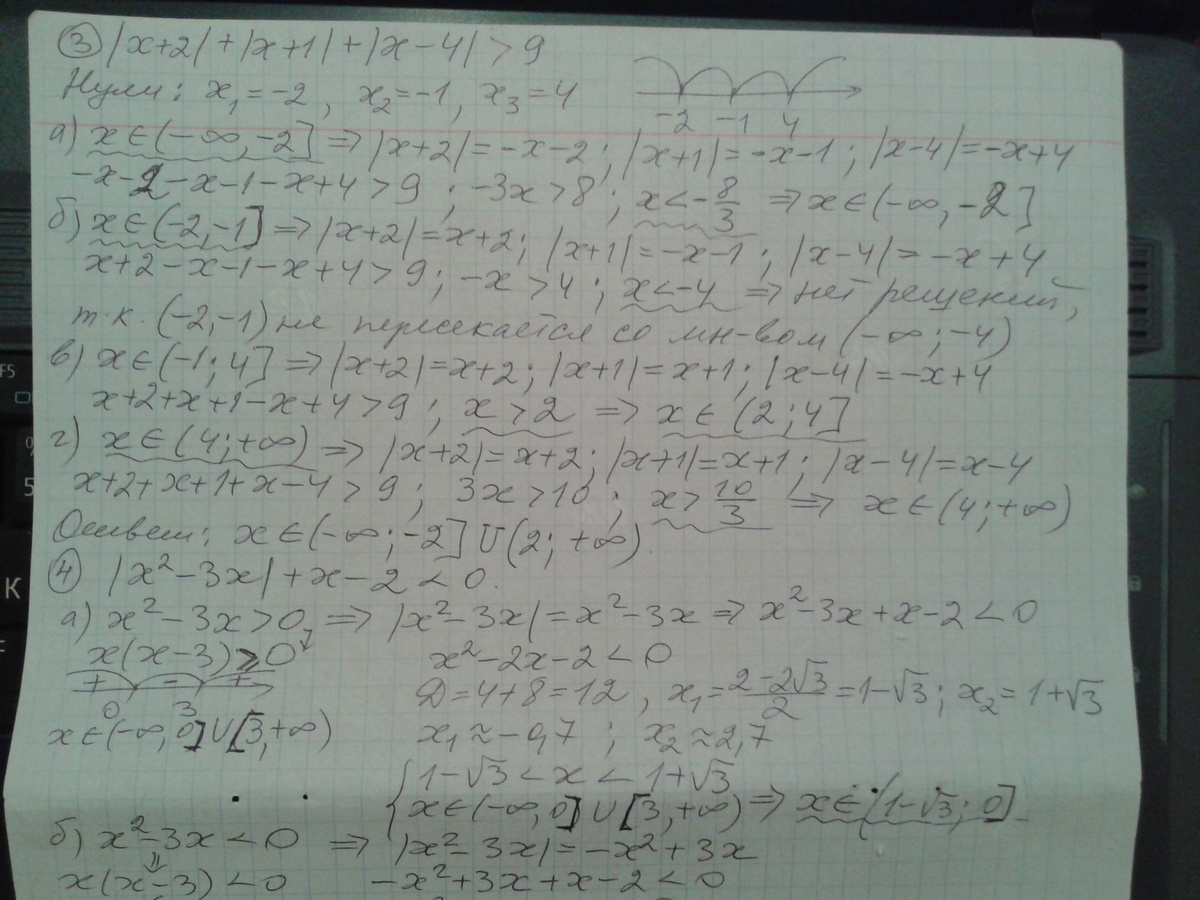 ③ |x+2|+|x+1|+|x-4|>9
Нули: x₁=-2, x₂=-1, x₃=4
-2 -1 4
а) x∈(-∞,-2] ⇒ |x+2|=-x-2; |x+1|=-x-1; |x-4|=-x+4
-x-2-x-1-x+4>9; -3x>8; x<-8/3 ⇒ x∈(-∞,-2]
б) x∈(-2,-1] ⇒ |x+2|=x+2; |x+1|=-x-1; |x-4|=-x+4
x+2-x-1-x+4>9; -x>4; x<-4 ⇒ нет решений,
т.к. (-2,-1) не пересекается со мн-вом (-∞;-4)
в) x∈(-1;4] ⇒ |x+2|=x+2; |x+1|=x+1; |x-4|=-x+4
x+2+x+1-x+4>9; x>2 ⇒ x∈(2;4]
г) x∈(4;+∞) ⇒ |x+2|=x+2; |x+1|=x+1; |x-4|=x-4
x+2+x+1+x-4>9; 3x>10; x>10/3 ⇒ x∈(4;+∞)
Ответ: x∈(-∞;-2]∪(2;+∞)
④ |x²-3x|+x-2<0.
а) x²-3x>0 ⇒ |x²-3x|=x²-3x ⇒ x²-3x+x-2<0
x(x-3)≥0 x²-2x-2<0
+ - +
0 3
D=4+8=12, x₁=(2-2√3)/2=1-√3; x₂=1+√3
x∈(-∞,0]∪[3,+∞) x₁≈-0,7; x₂≈2,7
{1-√3<x<1+√3
x∈(-∞,0]∪[3,+∞) ⇒ x∈(1-√3;0]
б) x²-3x<0 ⇒ |x²-3x|=-x²+3x
x(x-3)<0 -x²+3x+x-2<0
F5
5
К